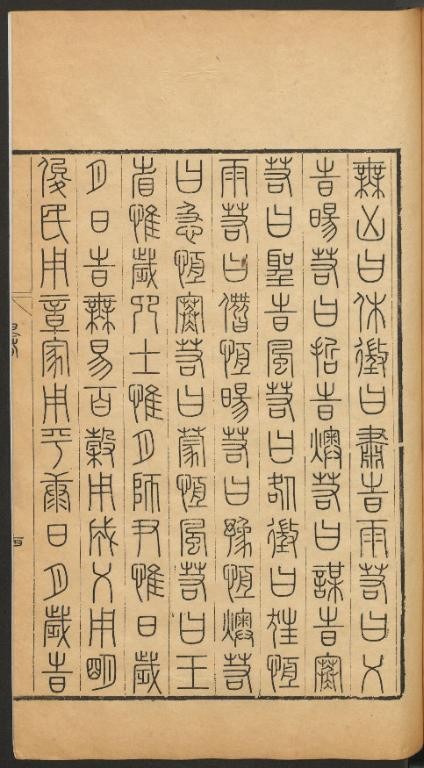 無凶曰休徵曰肅旹雨若曰乂
旹暘若曰哲旹燠若曰謀旹寒
若曰聖旹風若曰咎徵曰狂恆
雨若曰僭恆暘若曰豫恆燠若
曰急恆寒若曰蒙恆風若曰王
省惟歲卿士惟月師尹惟日歲
月日旹無易百穀用成乂用明
俊民用章家用平康日月歲旹